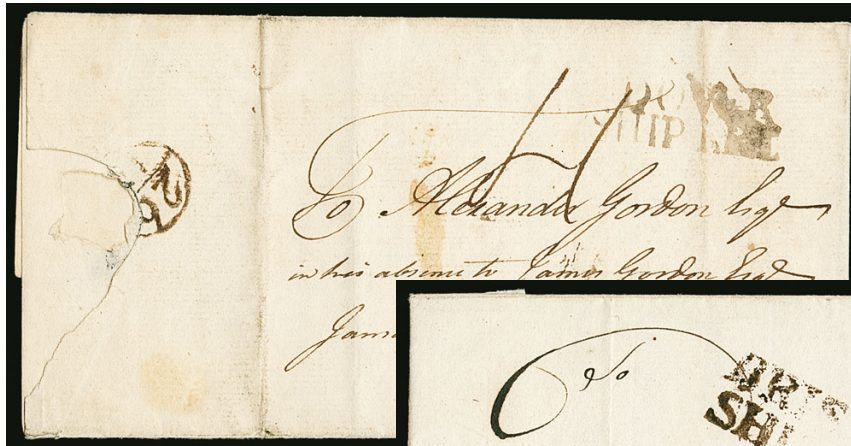 DOVER
SHIP LRE
To Alexander Gordon Esqr
in his absence to James Gordon Esqr
To
SHI